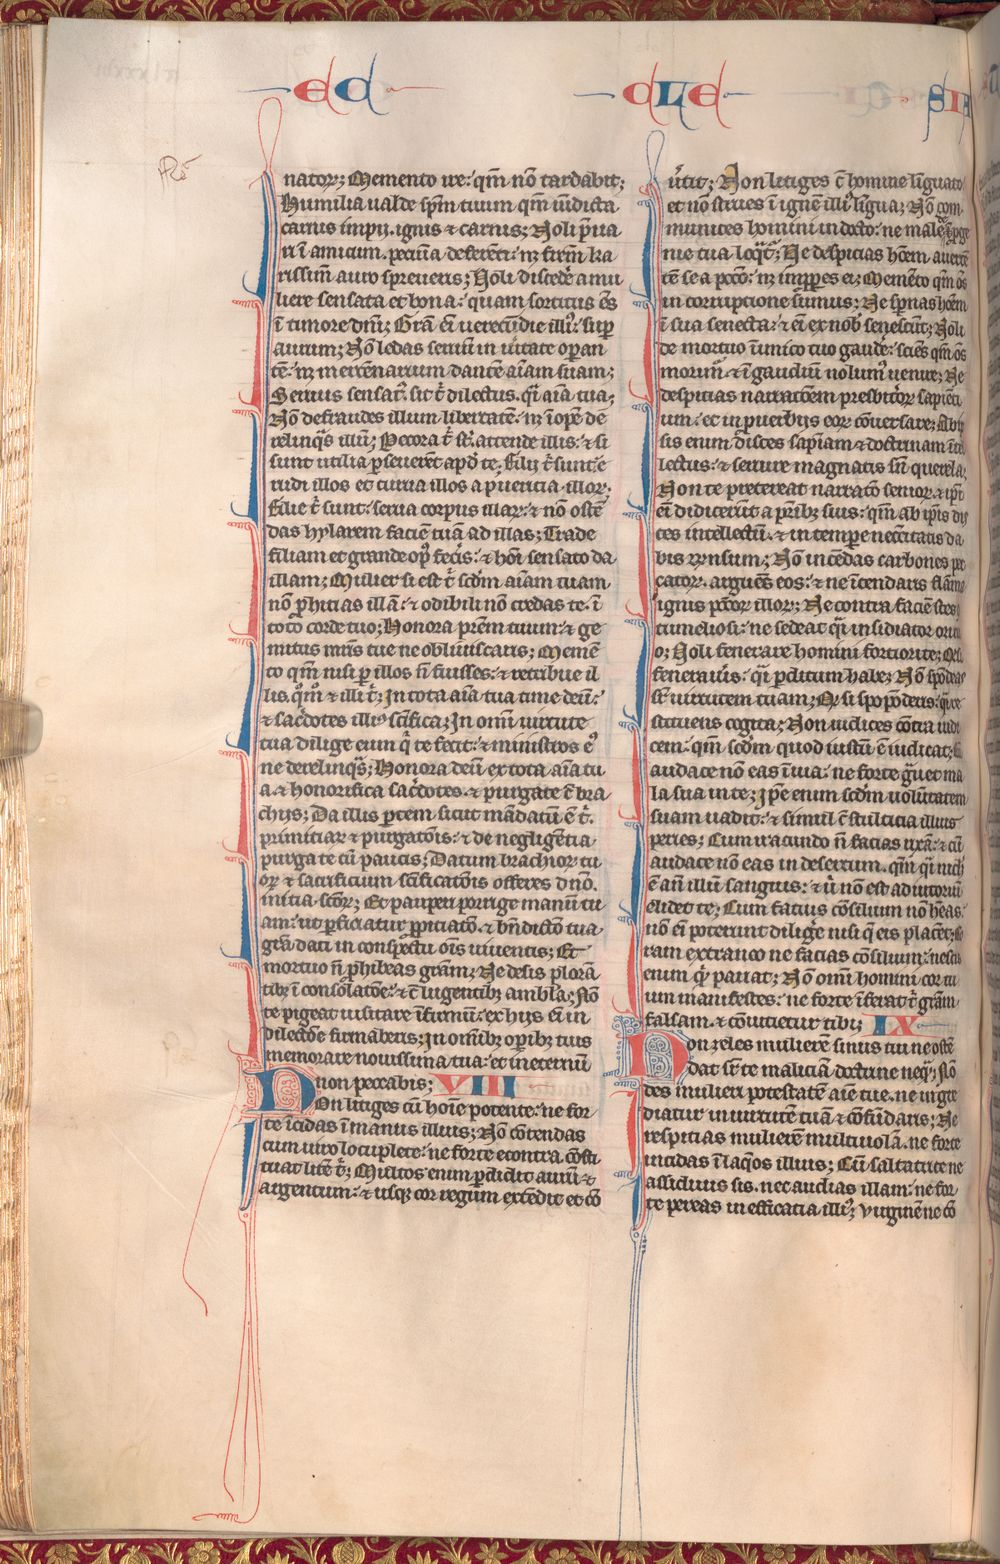 ec cle sia
natorꝫ; Memento ire: qm̄ nō tardabit;
Humilia ualde sp̄m tuum qm̄ uīdicta
carnis impij. ignis ⁊ carnis; Noli p̄ua
ri ī amicum. pecūia deferēti: nꝫ fr̄em ka
rissim̄ auro spreueris; Noli disced̄e a mu
liere sensata et bona: quam sortitus es
ī timore dn̄i; Gr̄a eī uerecūdie illiꝰ: sup̄
aurum; Nō ledas seruū in ūitate op̄an
tē: nꝫ mercēnarium dantē aīam suam;
Seruus sensatꝰ. sit t̄ dilectus. q̄i aīa tua;
Nō defraudes illum libertatē. nꝫ īopē de
relinq̄s illū; Pecora t̄ st̄. attende illis: ⁊ si
sunt utilia p̄seuerēt ap̄d te. Filij t̄ sunt: e
rudi illos et curua illos a pueritia illoꝝ.
Filie t̄ sunt: serua corpus illaꝝ: ⁊ nō ostē
das hylarem faciē tuā ad illas; Trade
filiam et grande opꝰ fec̄is: ⁊ hōi sensato da
illam; Mulier si est t̄ scd̄m aīam tuam
nō p̄hitias illā: ⁊ odibili nō credas te. ī
toto corde tuo; Honora pr̄em tuum: ⁊ ge
mitus mr̄is tue ne obliuiscaris; Memē
to qm̄ nisi p̄ illos n̄ fuisses: ⁊ retribue il
lis. qͦmͦ ⁊ illi t̄; In tota aīa tua time deū:
⁊ sac̄dotes illiꝰ sc̄ifica; In omī uirtute
tua dilige eum q̄ te fecit: ⁊ ministros eꝰ
ne derelinq̄s; Honora deū ex tota aīa tu
a ⁊ honorifica sac̄dotes. ⁊ purga te c̄ bra
chijs; Da illis p̄tem sicut mādatū ē t̄.
primitiaꝝ ⁊ purgatōis: ⁊ de negligētia
purga te cū paucis; Datum brachioꝝ tu
oꝝ ⁊ sacrificium sc̄ificatōis offeres dn̄o.
initia sc̄oꝝ; Et pauperi porrige manū tu
am: ut p̄ficiatur p̄pitiatō. ⁊ bn̄dictō tua.
gr̄a dati in conspectu oīs uiuentis; Et
mortuo n̄ p̄hibeas gr̄am; Ne desis plorā
tibꝫ ī consolatōe: ⁊ c̄ lugentibꝫ ambla; Nō
te pigeat uisitare īfirmū: ex hijs eī in
dilectōe firmaberis; In omībꝫ op̄ibꝫ tuis
memorare nouissima tua: et in eternū
non peccabis; VIII
Non litiges cū hoīe potente: ne for
te īcidas ī manus illius; Nō cōtendas
cum uiro locuplete: ne forte econtra cōsti
tuat litē t̄; Multos enim p̄didit aurū ⁊
argentum: ⁊ usqꝫ cor regum extēdit et cō
ūtit; Non litiges c̄ homine līguato
et nō strues ī ignē illiꝰ ligna; Nō com
munices homini indocto: ne male de p̄ge
nie tua loq̄t̄; Ne despicias hoīem auertē
tē se a pctō: nꝫ imp̄p̄es ei; Memēto qm̄ oēs
in corruptione sumus; Ne sp̄nas hoīem
ī sua senecta: ⁊ eī ex nob̄ senescūt; Noli
de mortuo īimico tuo gaudē̄: sciēs qm̄ oēs
morimꝰ. ⁊ ī gaudiū nolumꝰ uenire; Ne
despicias narratōem presbitoꝝ sapiēti
um: et in prouerbijs eoꝝ cōuersare; Ab ip̄
sis enim disces sapīam ⁊ doctrinam ītel
lectus: ⁊ seruire magnatis sn̄ querela;
Non te pretereat narratō senioꝝ. ⁊ ip̄i
eī didicerūt a patribꝫ suis: qm̄ ab ip̄is dis
ces intellectū. ⁊ in tempore necc̄itatis da
bis rn̄sum; Nō incēdas carbones pec
catoꝝ. arguēs eos: ⁊ ne īcendaris flāma
ignis pctōꝝ illoꝝ; Ne contra faciē stes cō
tumeliosi: ne sedeat q̄i insidiator ori tu
o; Noli fenerare homini fortiori te; Qd̄ si
feneraūis: q̄i p̄ditum habe; Nō spōdeas
sr̄ uirtutem tuam; Qd̄ si spopōderis: q̄i re
stituens cogita; Non iudices cōtra iudi
cem: qm̄ scd̄m quod iustū ē iudicat; Cū
audace nō eas ī uia: ne forte ḡuet ma
la sua in te; Ip̄e enim scd̄m uolūtatem
suam uadit: ⁊ simul c̄ stulticia illius
peries; Cum iracundo n̄ facias rixā: ⁊ cū
audace nō eas in desertum. qm̄ q̄i nich̄
ē an̄ illū sanguis: ⁊ ū̄ nō est adiutoriū
elidet te; Cum fatuis cōsilium nō h̄eas.
nō eī poterunt diliḡe nisi q̄ eis placēt; Co
ram extraneo ne facias cōsilium: nescis
enim q̄d pariat; Nō omī homini cor tu
um manifestes: ne forte īferat t̄ gr̄am
falsam. ⁊ cōuitietur tibi; IX
Non zeles mulierē sinus tui ne ostē
dat sr̄ te maliciā doctrine neq̄; Nō
des mulieri potestatē aīe tue. ne īngre
diatur in uirtutē tuā ⁊ cōfūdaris; Ne
respicias mulierē multiuolā. ne forte
incidas ī laq̄os illius; Cū saltatrice ne
assiduus sis. nec audias illam: ne for
te pereas in efficacia illiꝰ; Virginē ne cō